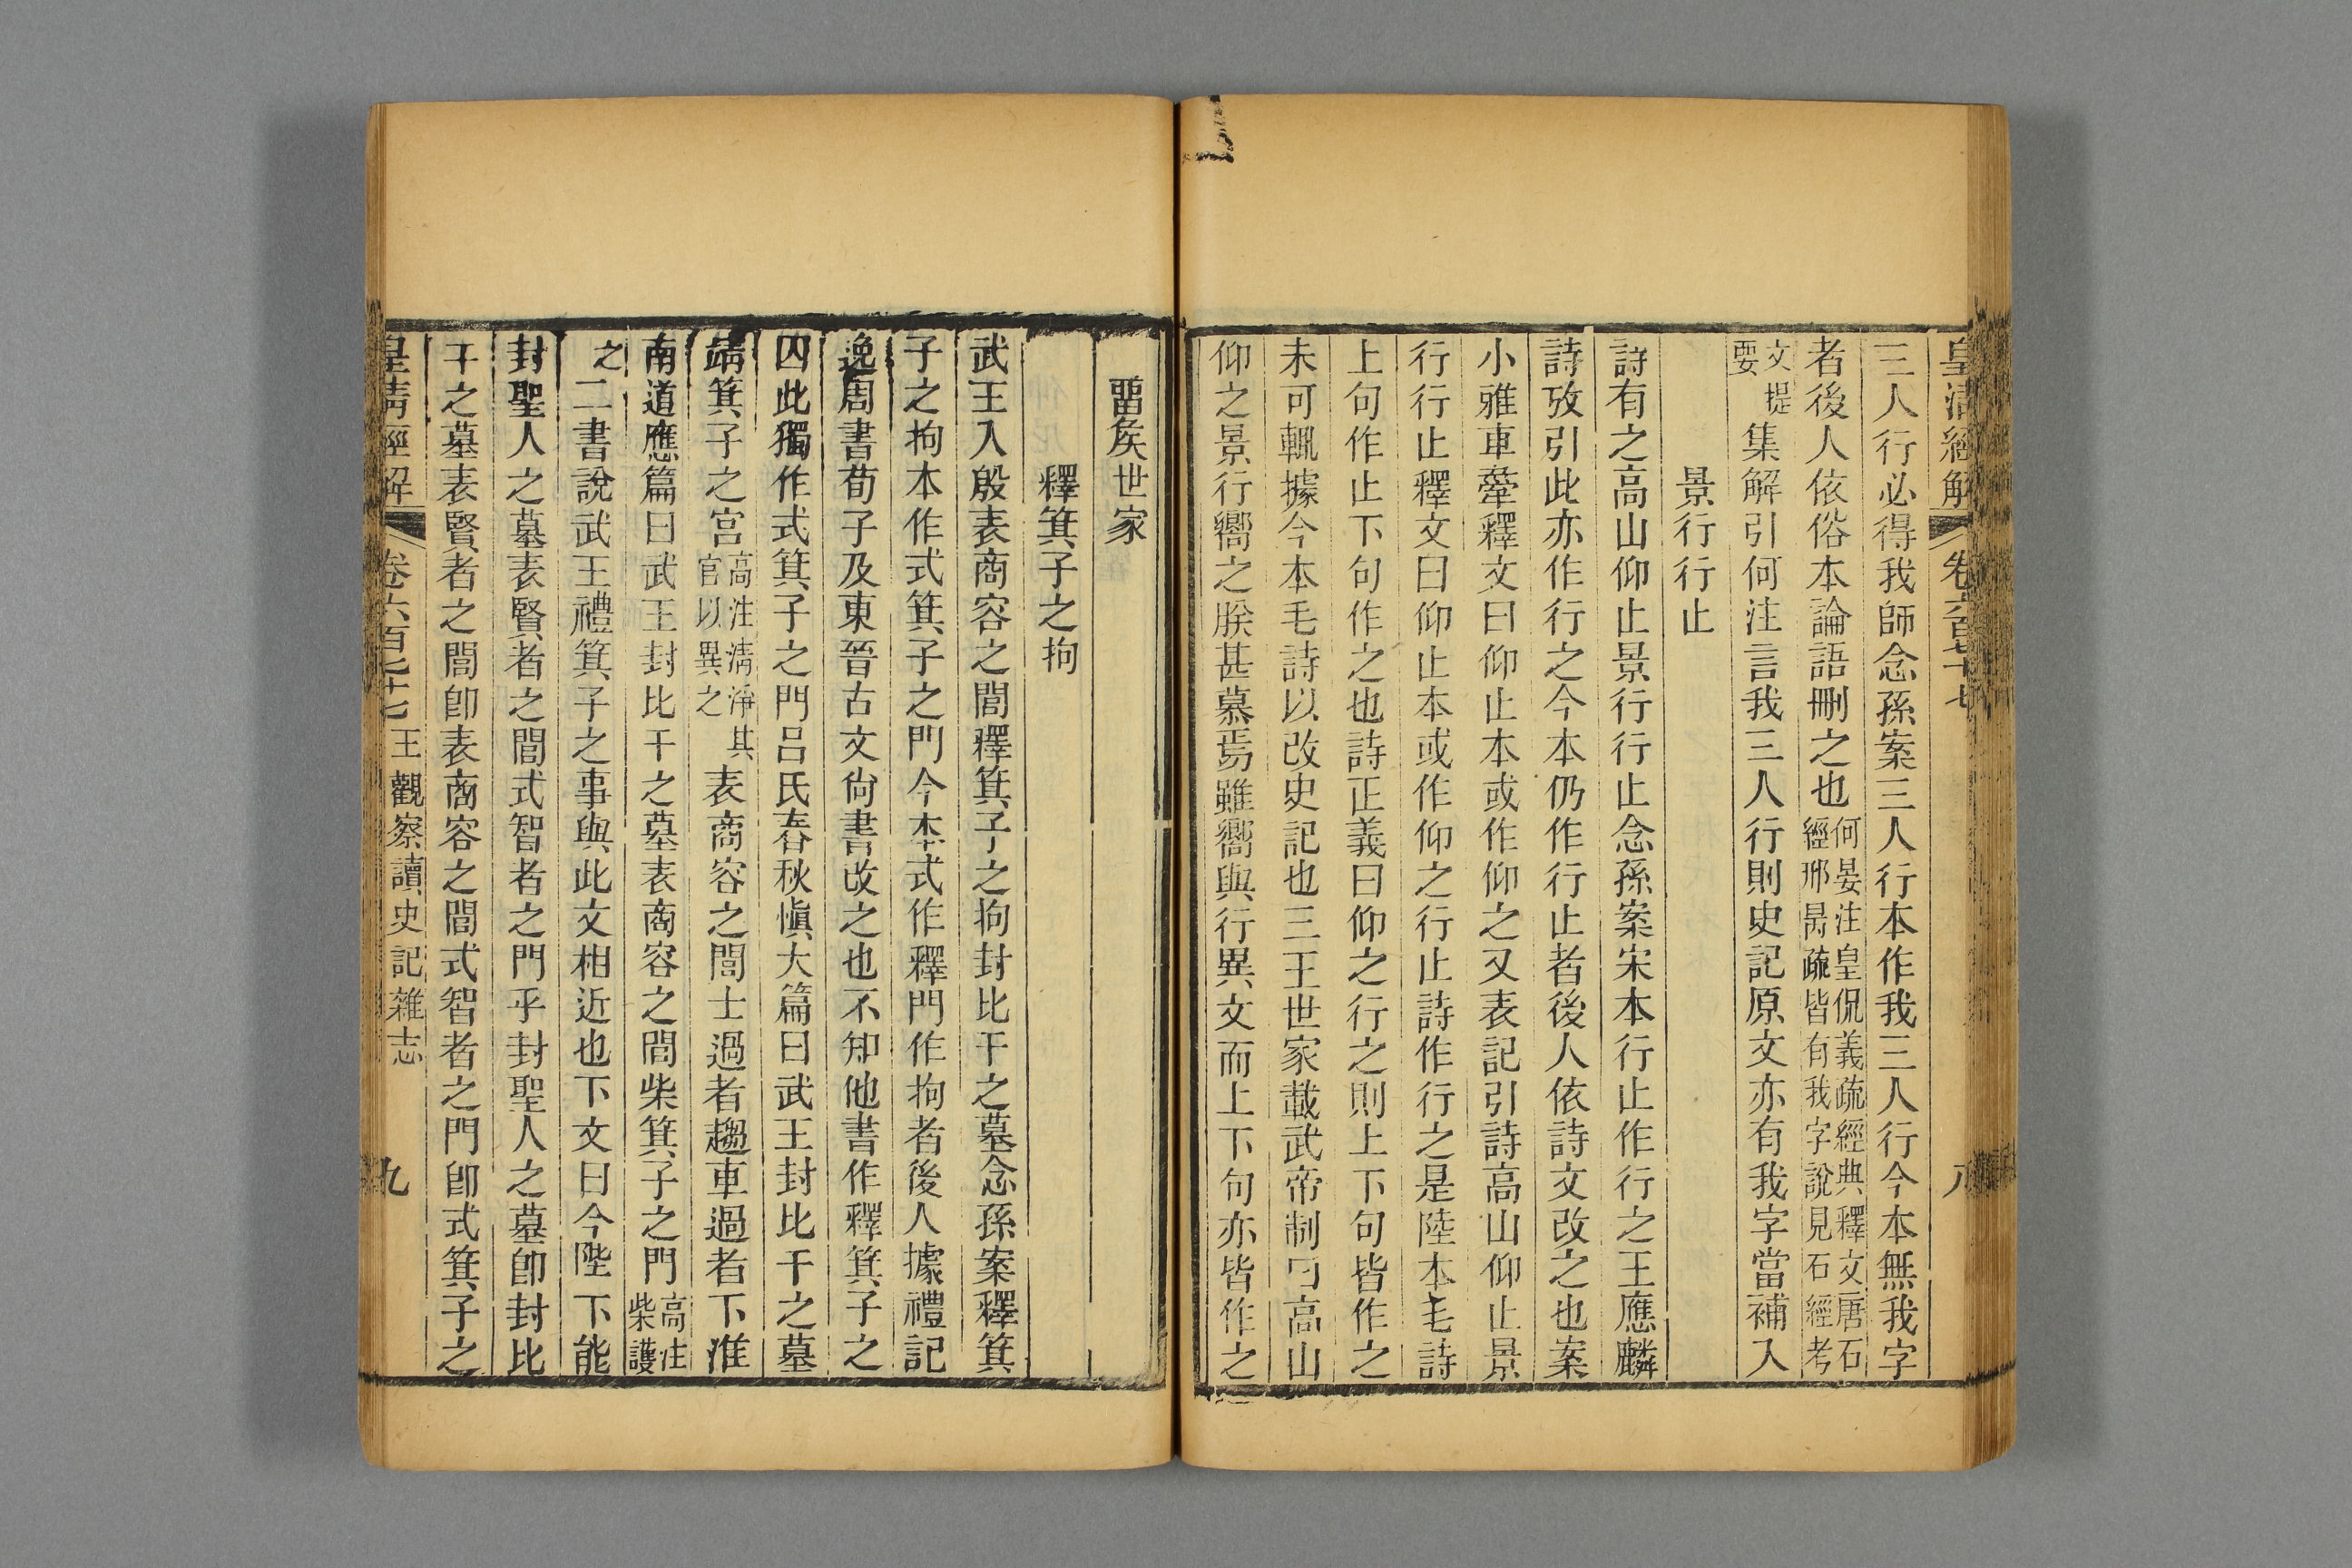 皇清經解 卷六百七十七 八
三人行必得我師念孫案三人行本作我三人行今本無我字
者後人依俗本論語刪之也何晏注皇侃義疏經典釋文唐石經邢昺疏皆有我字說見石經考
文提要集解引何注言我三人行則史記原文亦有我字當補入
景行行止
詩有之高山仰止景行行止念孫案宋本行止作行之王應麟
詩攷引此亦作行之今本仍作行止者後人依詩文改之也案
小雅車舝釋文曰仰止本或作仰之又表記引詩高山仰止景
行行止釋文曰仰止本或作仰之行止詩作行之是陸本毛詩
上句作止下句作之也詩正義曰仰之行之則上下句皆作之
未可輒據今本毛詩以改史記也三王世家載武帝制曰高山
仰之景行嚮之朕甚慕焉雖嚮與行異文而上下句亦皆作之
畱矦世家
釋箕子之拘
武王入殷表商容之閭釋箕子之拘封比干之墓念孫案釋箕
子之拘本作式箕子之門今本式作釋門作拘者後人據禮記
逸周書荀子及東晉古文尙書改之也不知他書作釋箕子之
囚此獨作式箕子之門呂氏春秋愼大篇曰武王封比干之墓
靖箕子之宮高注淸淨其官以異之表商容之閭士過者趨車過者下淮
南道應篇曰武王封比干之墓表商容之閭柴箕子之門高注柴護
之二書說武王禮箕子之事與此文相近也下文曰今陛下能
封聖人之墓表賢者之閭式智者之門乎封聖人之墓卽封比
干之墓表賢者之閭卽表商容之閭式智者之門卽式箕子之
皇清經解 卷六百七十七 王觀察讀史記雜志 九